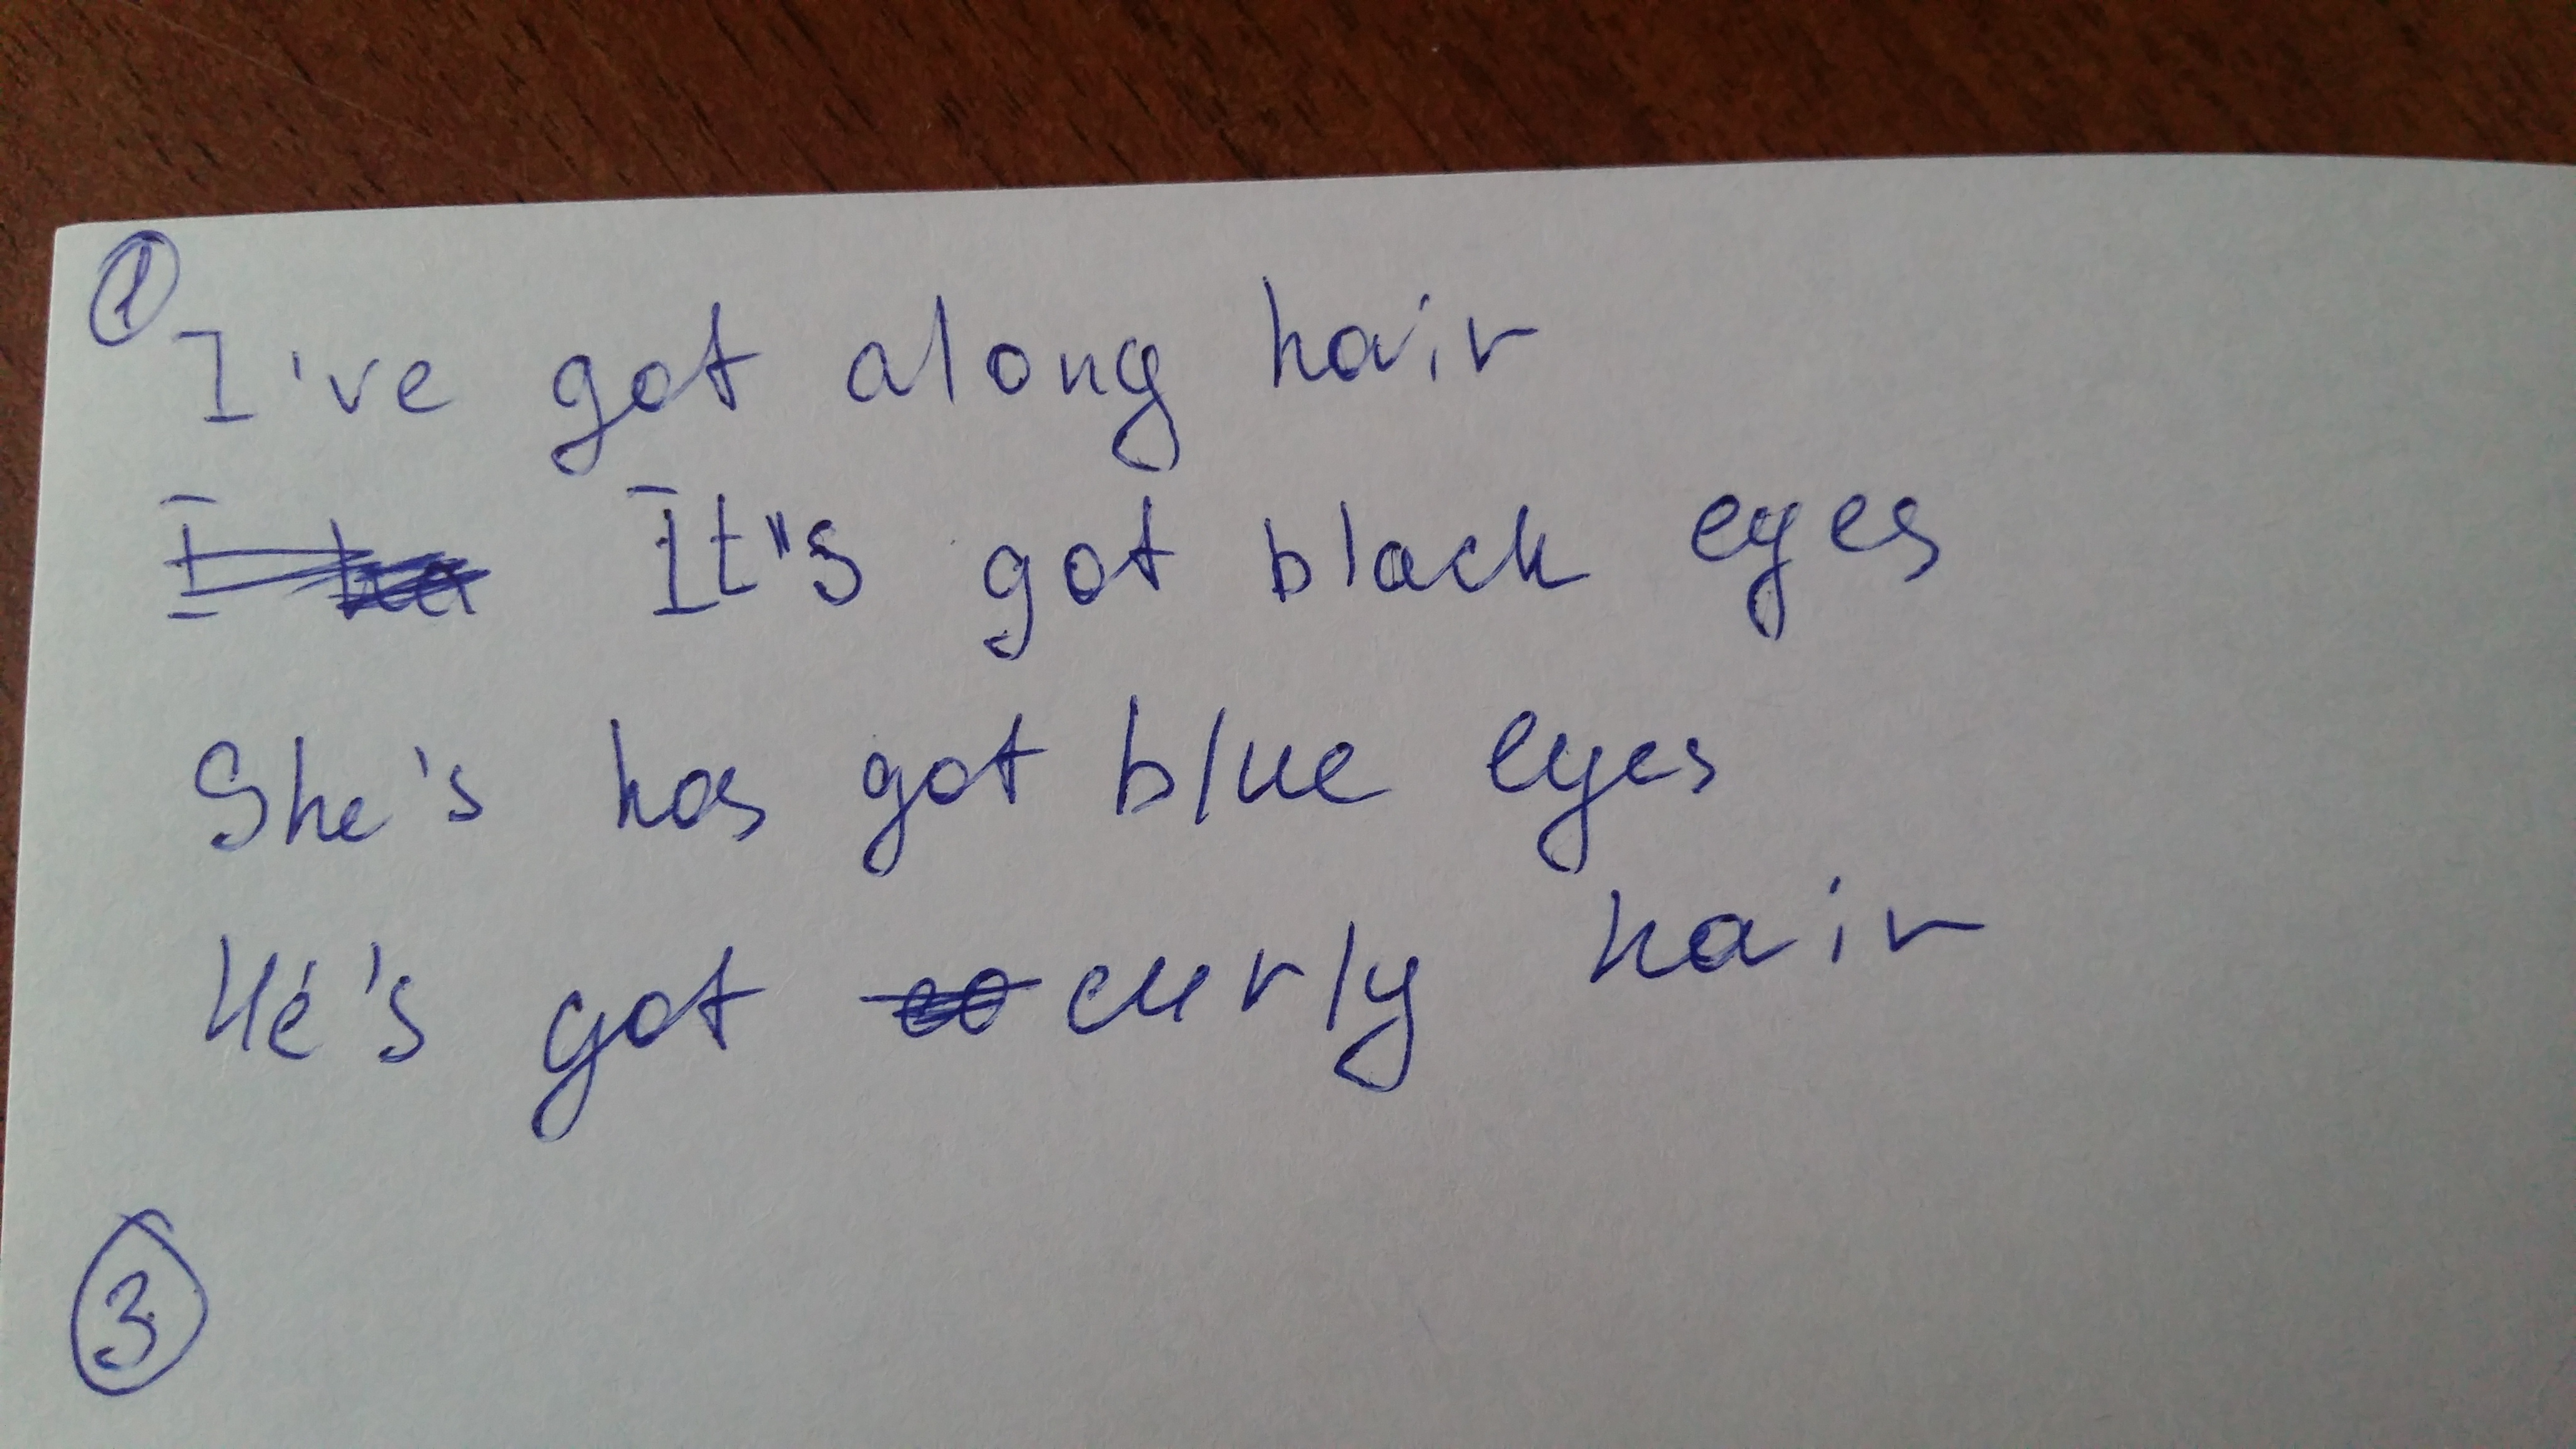 ①
I've got along hair
It"s got black eyes
She's has got blue eyes
He's got curly hair
③